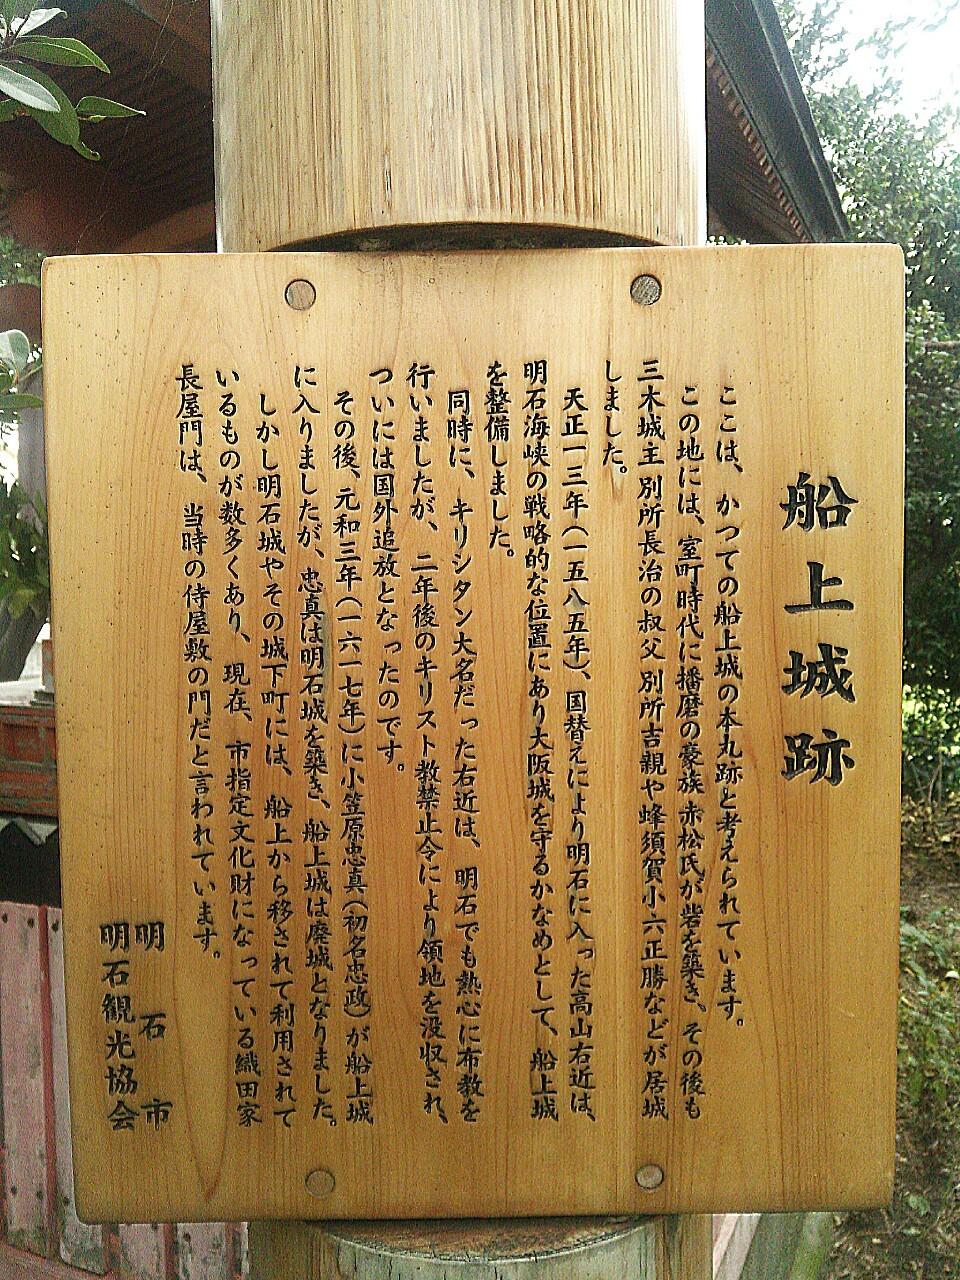 船上城跡
ここは、かつての船上城の本丸跡と考えられています。
この地には、室町時代に播磨の豪族 赤松氏が砦を築き、その後も
三木城主 別所長治の叔父 別所吉親や蜂須賀小六正勝などが居城
しました。
天正一三年(一五八五年)、国替えにより明石に入った高山右近は、
明石海峡の戦略的な位置にあり大阪城を守るかなめとして、船上城
を整備しました。
同時に、キリシタン大名だった右近は、明石でも熱心に布教を
行いましたが、二年後のキリスト教禁止令により領地を没収され、
ついには国外追放となったのです。
その後、元和三年(一六一七年)に小笠原忠真(初名忠政)が船上城
に入りましたが、忠真は明石城を築き、船上城は廃城となりました。
しかし明石城やその城下町には、船上から移されて利用されて
いるものが数多くあり、現在、市指定文化財になっている織田家
長屋門は、当時の侍屋敷の門だと言われています。
明石市
明石観光協会